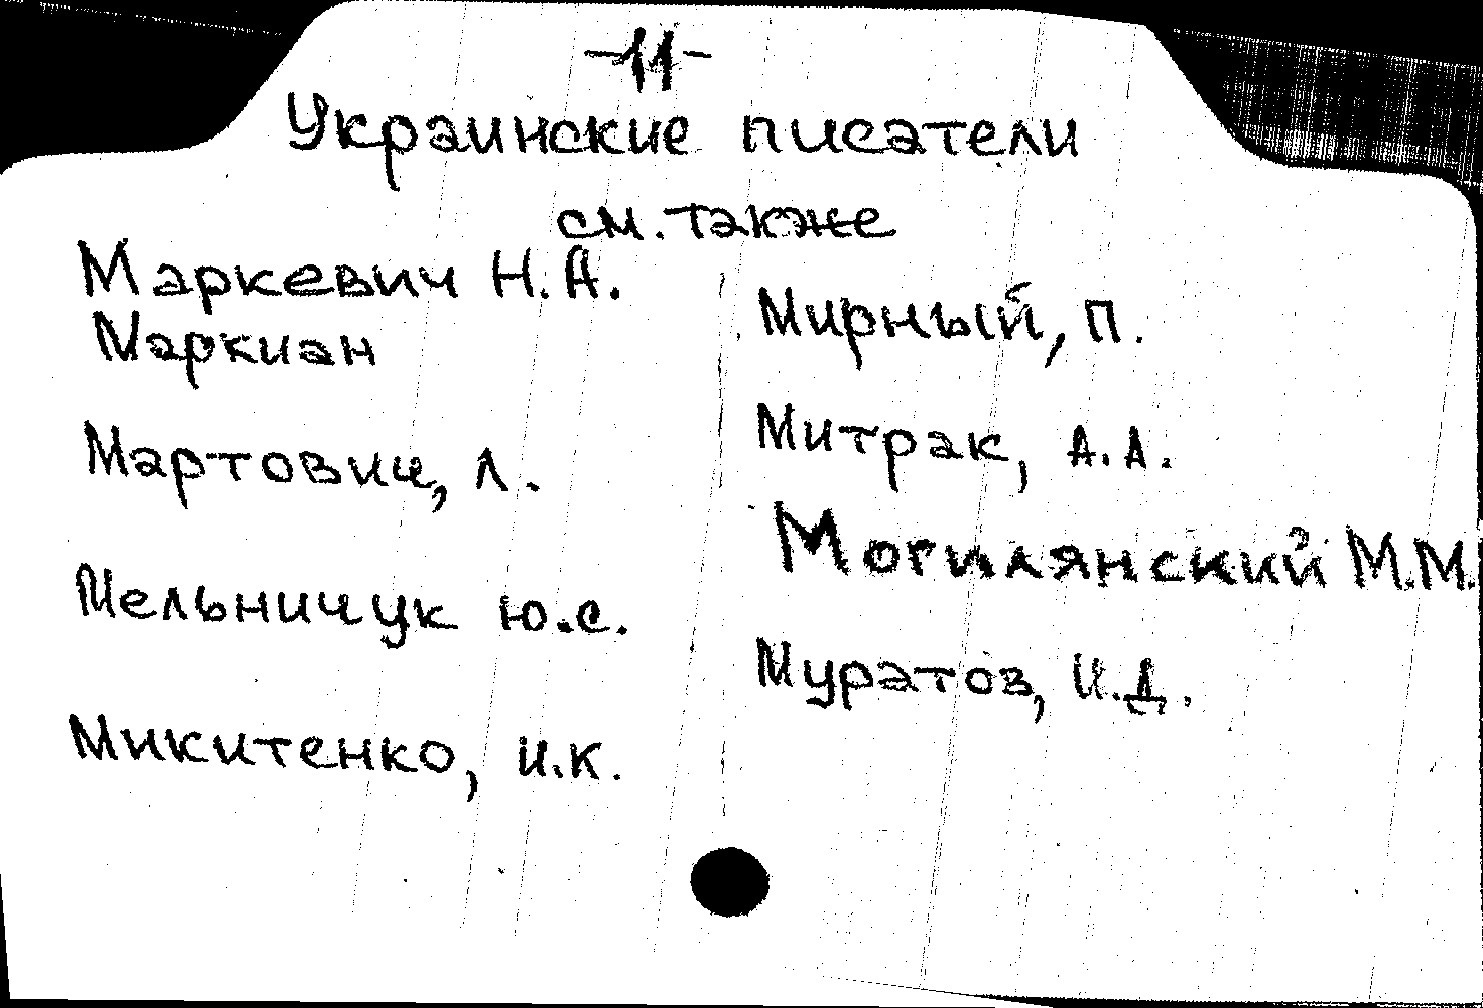 -11-
Украинские писатели
см. также
Маркевич Н.А.
Маркиан
Мартович, Л.
Мельничук Ю.С.
Микитенко, И.К.
Мирный, П.
Митрак, А.А.
Могилянский М.М.
Муратов, И.Д.